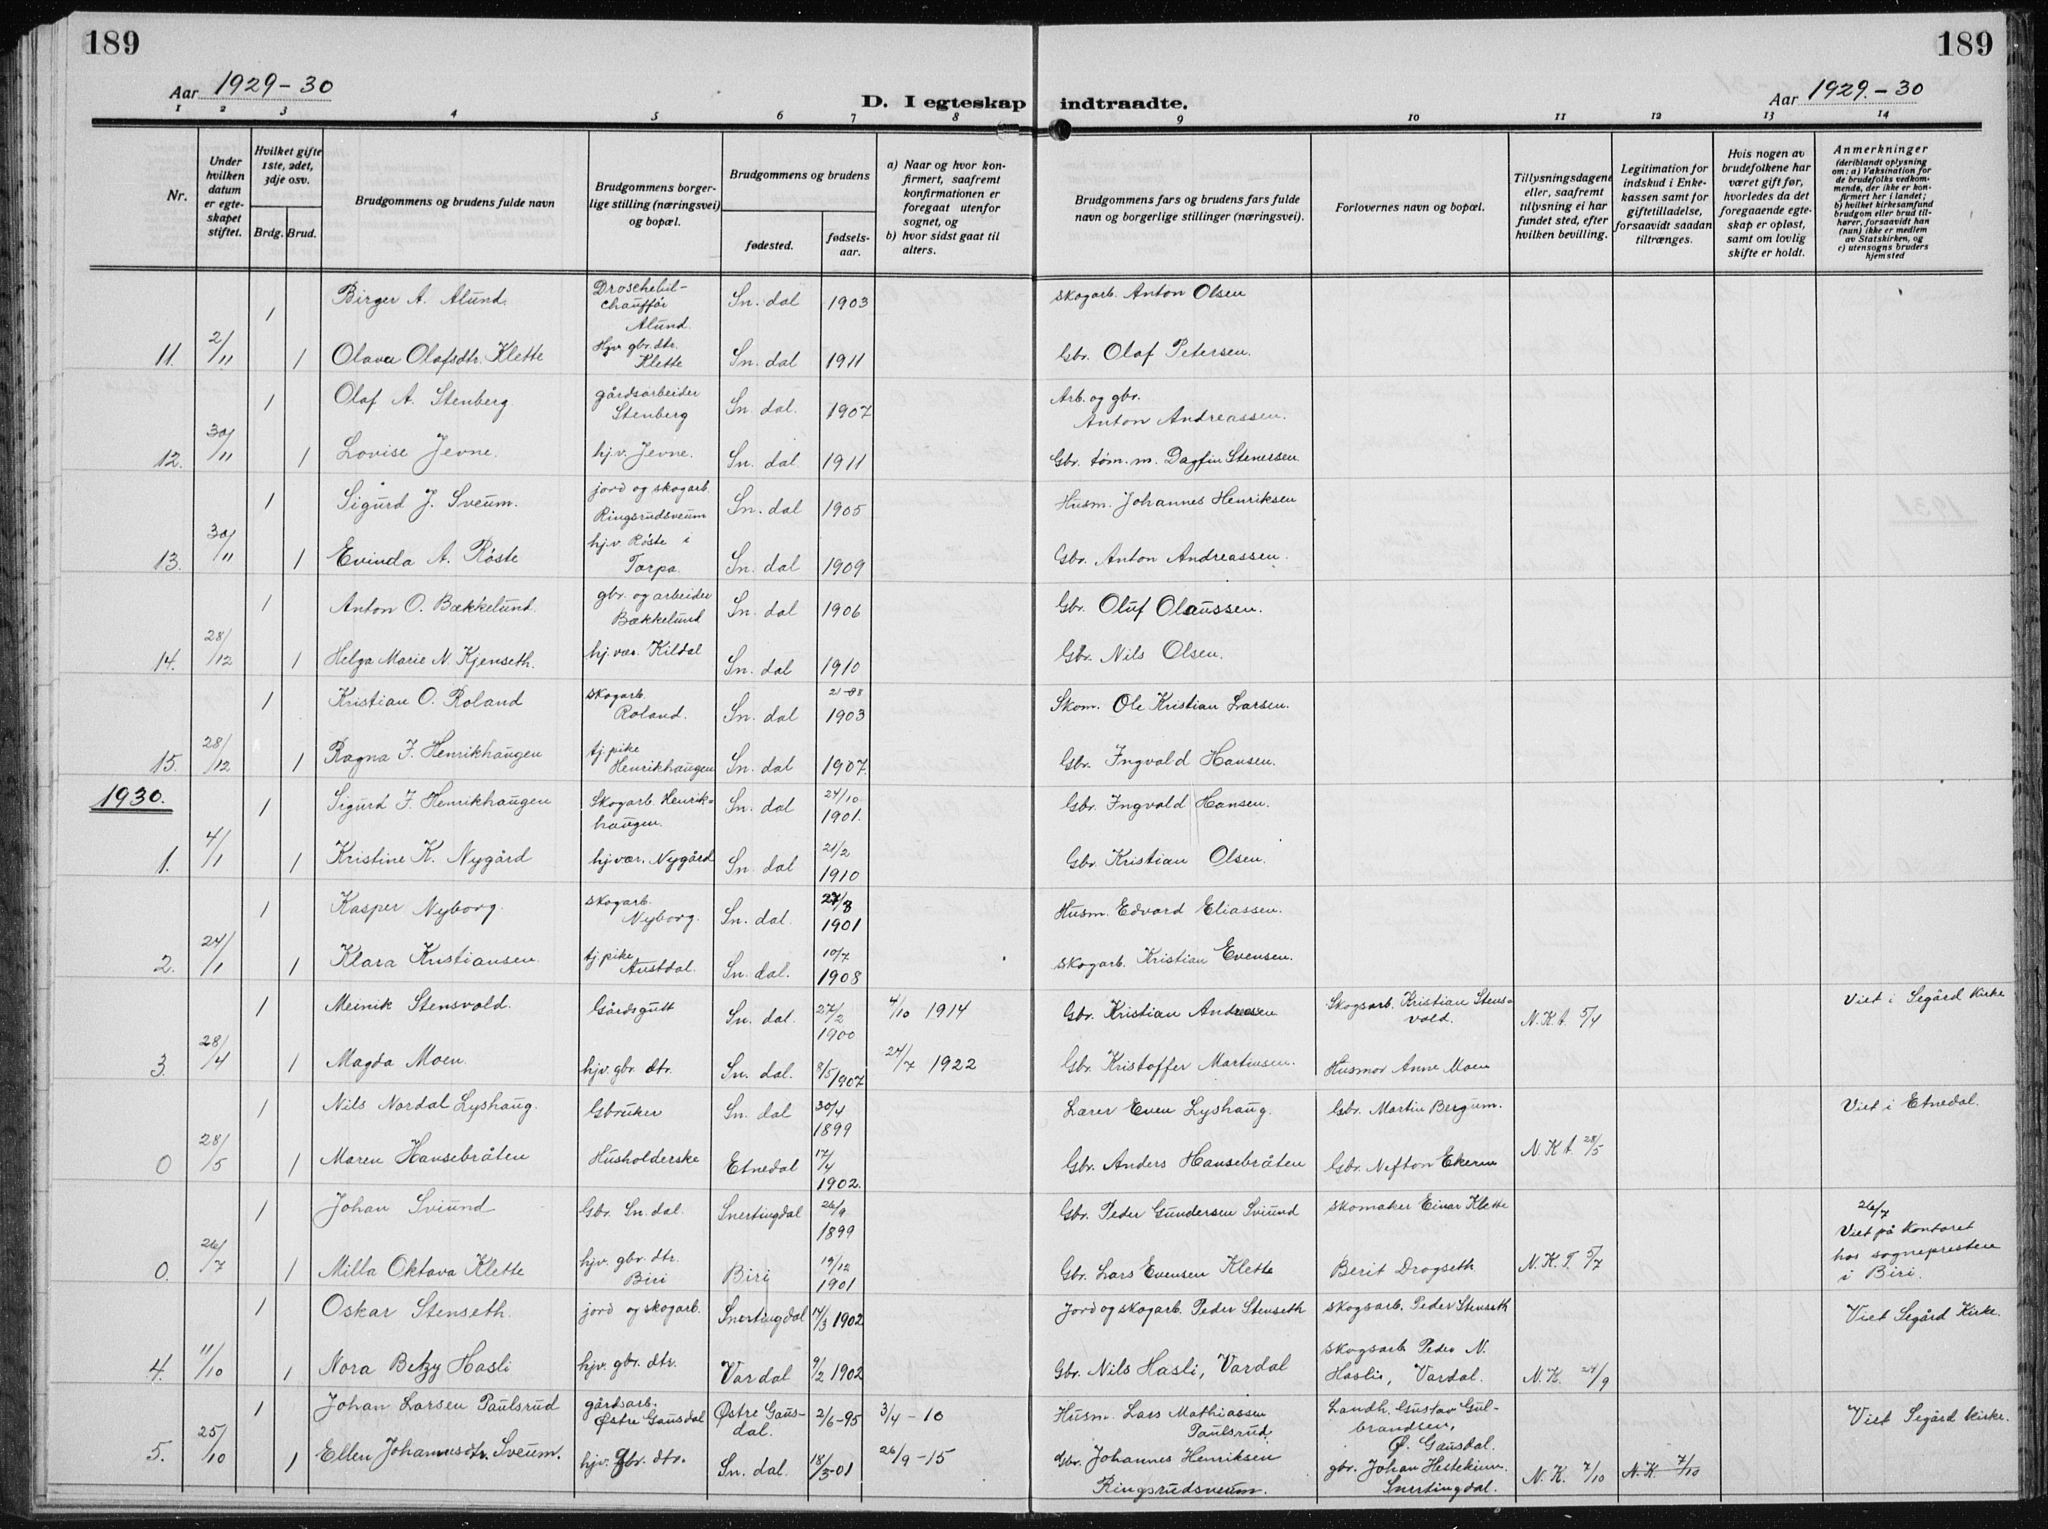 189
189
Aar 1929-30
D. I egteskap indtraadte.
Aar 1929.-30
1 2 3 4 5 6 7 8 9 10 11 12 13 14
Nr.
Under hvilken datum er egteskapet stiftet.
Hvilket gifte 1ste, 2det, 3dje osv.
Brdg. Brud.
Brudgommens og brudens fulde navn
Brudgommens borgerlige stilling (næringsvei) og bopæl.
Brudgommens og brudens
fødested. fødselsaar.
a) Naar og hvor konfirmert, saafremt konfirmationen er foregaat utenfor sognet, og
b) hvor sidst gaat til alters.
Brudgommens fars og brudens fars fulde navn og borgerlige stillinger (næringsvei).
Forlovernes navn og bopæl.
Tillysningsdagene eller, saafremt tillysning ei har fundet sted, efter hvilken bevilling.
Legitimation for indskud i Enkekassen samt for giftetilladelse, forsaavidt saadan tiltrænges.
Hvis nogen av brudefolkene har været gift før, hvorledes da det foregaaende egteskap er opløst, samt om lovlig skifte er holdt.
Anmerkninger
(deriblandt oplysning om: a) Vaksination for de brudefolks vedkommende, der ikke er konfirmert her i landet; b) hvilket kirkesamfund brudgom eller brud tilhører, forsaavidt han (hun) ikke er medlem av Statskirken, og c) utensogns bruders hjemsted
1 Birger A. Alund. Droschebil-chauffør Alund. Sn. dal 1903 skogarb. Anton Olsen
11. 2/11 1 Olava Olafsdtr. Klette Hjv. gbr. dtr. Klette Sn. dal 1911 Gbr. Olaf Petersen.
1 Olaf A. Stenberg gårdsarbeider Stenberg Sn. dal. 1907 Arb. og gbr. Anton Andreassen.
12. 30/11 1 Lovise Jevne. hjv. Jevne. Sn. dal. 1911 Gbr. tøm. m. Dagfin Stenersen
1 Sigurd J. Sveum. jord og skogarb. Ringsrudsveum Sn. dal 1905 Husm. Johannes Henriksen
13. 30/11 1 Evinda A. Røste hjv. Røste i Torpa. Sn. dal 1909 Gbr. Anton Andreassen.
1 Anton O. Bækkelund. gbr. og arbeider Bækkelund Sn. dal 1906 Gbr. Oluf Olaussen.
14. 28/12 1 Helga Marie N. Kjenseth. hj.vær. Kildal Sn. dal 1910 Gbr. Nils Olsen.
1 Kristian O. Roland skogarb. Roland. Sn. dal 1903 Skom. Ole Kristian Larsen.
15. 28/12 1 Ragna I. Henrikhaugen tj. pike Henrikhaugen Sn. dal 1907. Gbr. Ingvald Hansen.
1930.
1 Sigurd I. Henrikhaugen Skogarb. Henrik-haugen. Sn. dal 24/10 1901. Gbr. Ingvald Hansen.
1. 4/1 1 Kristine K. Nygård hjvær. Nygård Sn. dal 21/2 1910 Gbr. Kristian Olsen.
1 Kasper Nyborg. skogarb. Nyborg. Sn. dal. 27/8 1901 Husm. Edvard Eliassen.
2. 24/1 1 Klara Kristiansen. tj. pike Austdal. Sn. dal. 10/7 1908 skogarb. Kristian Evensen.
1 Meinik Stensvold. Gårdsgutt Sn. dal. 27/2 1900 4/10 1914 Gbr. Kristian Andreassen Skogsarb. Kristian Stensvold. N.K.A. 5/4 Viet i Segård Kirke
3. 28/4 1 Magda Moen. hjv. gbr. dtr. Sn. dal. 8/5 1907 24/7 1922 Gbr. Kristoffer Martinsen. Husmor Anne Moen
1 Nils Nordal Lyshaug. Gbruker Sn. dal 30/4 1899 Lærer Even Lyshaug. Gbr. Martin Bergum. Viet i Etnedal.
0 28/5 1 Maren Hansebråten Husholderske Etnedal 17/4 1902. Gbr. Anders Hansebråten Gbr. Nefton Ekern N.K.A. 28/5
1 Johan Sviund Gbr. Sn. dal. Snertingdal 26/9 1899 Gbr. Peder Gundersen Sviund skomaker Einar Klette 26/7 Viet på kontoret hos sognepresten i Biri.
0. 26/7 1 Milla Oktava Klette hjv. gbr. dtr. Biri Biri 19/12 1901 Gbr. Lars Evensen Klette Berit Drogseth N.K.T. 5/7
1 Oskar Stenseth. jord og skogarb. Snertingdal 14/3 1902 Jord og skogarb. Peder Stenseth skogsarb. Peder Stenseth Viet Segård Kirke.
4. 11/10 1 Nora Betzy Hasli hjv. gbr. dtr. Vardal 9/2 1902 Gbr. Nils Hasli, Vardal skogsarb. Peder N. Haslie, Vardal. N.K. 24/9
1 Johan Larsen Paulsrud gårdsarb. Østre Gausdal Østre Gausdal. 2/6-95 3/4-10 Husm. Lars Mathiassen Paulsrud. Landh. Gustav Gulbrandsen, Ø. Gausdal. Viet Segård kirke.
5. 25/10 1 Ellen Johannesdtr. Sveum. hjv. gbr. dtr. Sn. dal. 18/3-01 26/9-15 Gbr. Johannes Henriksen Ringsrudsveum. gbr. Johan Hestekinn. Snertingdal. N.K. 7/10 N.K. 7/10